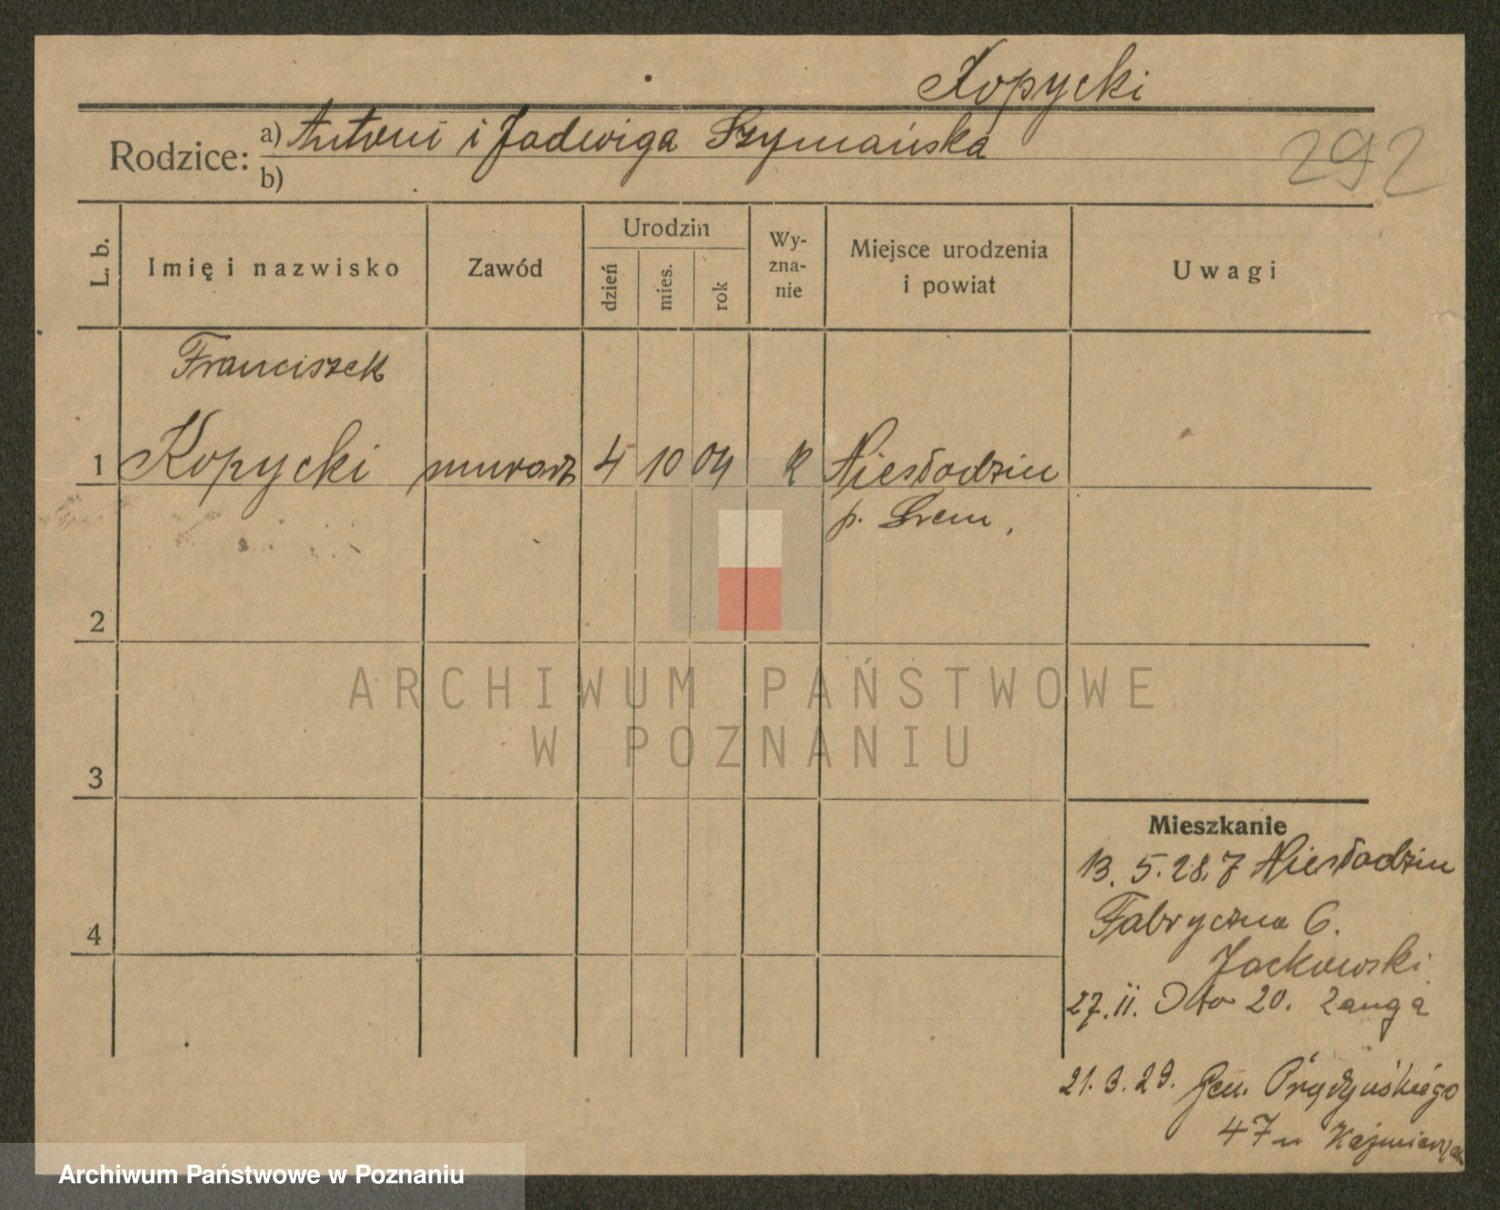 Kopycki
Rodzice: a) Antoni i Jadwiga Szymańska
b)
292
L. b.
Imię i nazwisko
Zawód
Urodzin
dzień
mies.
rok
Wy-
zna-
nie
Miejsce urodzenia
i powiat
Uwagi
Franciszek
1 Kopycki murarz 4 10 04 k Niesłodzin
p. Śrem.
2
3
4
ARCHIWUM PAŃSTWOWE
W POZNANIU
Mieszkanie
13. 5. 28. z Niesłodzin
Fabryczna 6.
Jackowski
27. 11. 20. Zanga
21. 3. 29. Gen. Prądzyńskiego
47 u
Archiwum Państwowe w Poznaniu